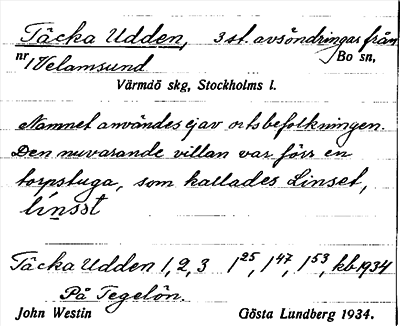 Täcka Udden, 3 st. avsöndringar från
nr 1 Velamsund Bo sn,
Värmdö skg, Stockholms l.
Namnet användes ej av ortsbefolkningen.
Den nuvarande villan var förr en
torpstuga, som kallades Linset,
línsst
Täcka Udden 1, 2, 3 1²⁵, 1⁴⁷, 1⁵³, kb 1934
På Tegelön.
John Westin Gösta Lundberg 1934.